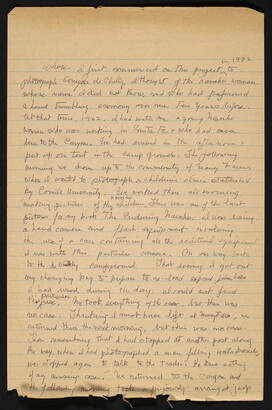 in 1972
When I first commenced on this project, to
photograph Canyon de Chelly, I thought of the Navaho woman
whose name I did not know and who had performed
a hand trembling ceremony over me ten years before.
At that time, 1962, I had with me a young Navaho
woman who was working in Santa Fe & who had never
been to the Canyon. We had arrived in the afternoon &
put up our tent in the camp grounds. The following
morning we drove up to the community of Many Farms
where I wanted to photograph a children's clinic established
by Cornell University. We worked there all morning
making pictures of the children. This was one of the last
pictures for my book The Enduring Navaho. I was using
a hand camera and flash equipment involving
the use of a case containing all the additional equipment
I was with this particular camera. On our way back
to the campground. That evening I got out
my changing bag to prepare to
I had used during the day,
case. We took everything of the car, but there was
no case. Thinking I must have left at, we
returned there the next morning, but there was no case.
Then remembering that I had stopped at another post along
the way, when I had photographed a man filling water barrels,
we stopped again to talk to the Trader. He knew nothing
of any missing case. We returned to the Canyon and
the following morning